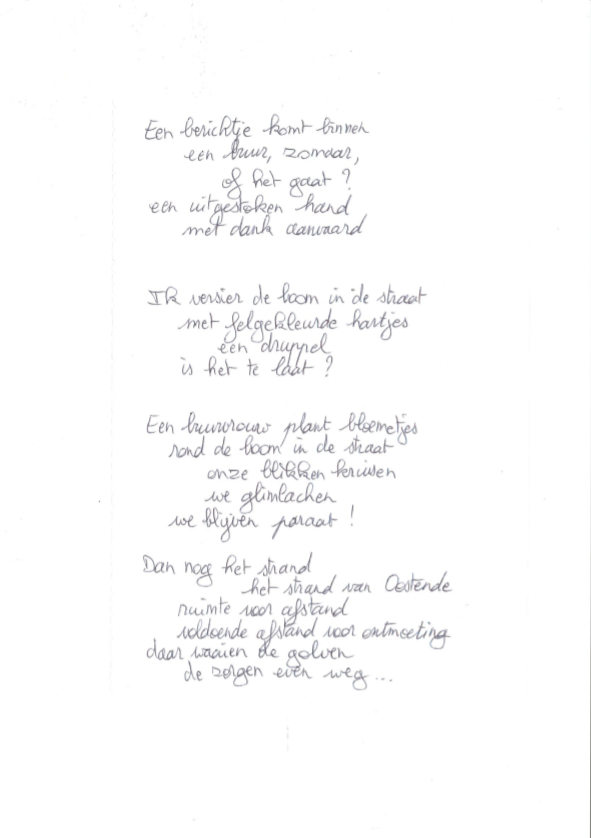 Een berichtje komt binnen
een buur, zomaar,
of het gaat ?
een uitgestoken hand
met dank aanvaard
Ik versier de boom in de straat
met felgekleurde hartjes
een druppel
is het te laat ?
Een buurvrouw plant bloemetjes
rond de boom in de straat
onze blikken kruisen
we glimlachen
we blijven paraat !
Dan nog het strand
het strand van Oostende
ruimte voor afstand
voldoende afstand voor ontmoeting
daar waaien de golven
de zorgen even weg...